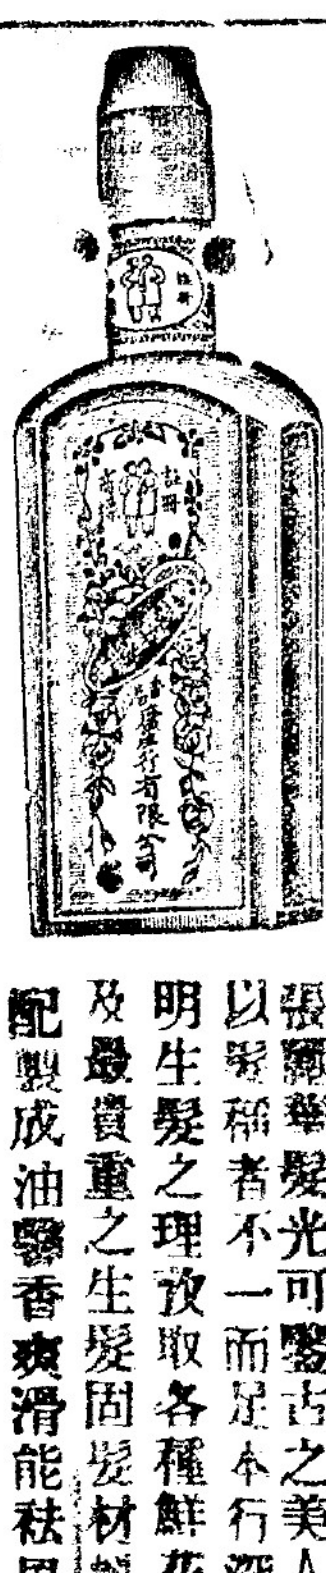 註冊
商標
註冊
香港廣生行有限公司
張麗華髮光可鑒古之美人
以髮稱者不一而足本行深
明生髮之理故取各種鮮花
及最貴重之生髮固髮材料
配製成油馨香爽滑能祛風